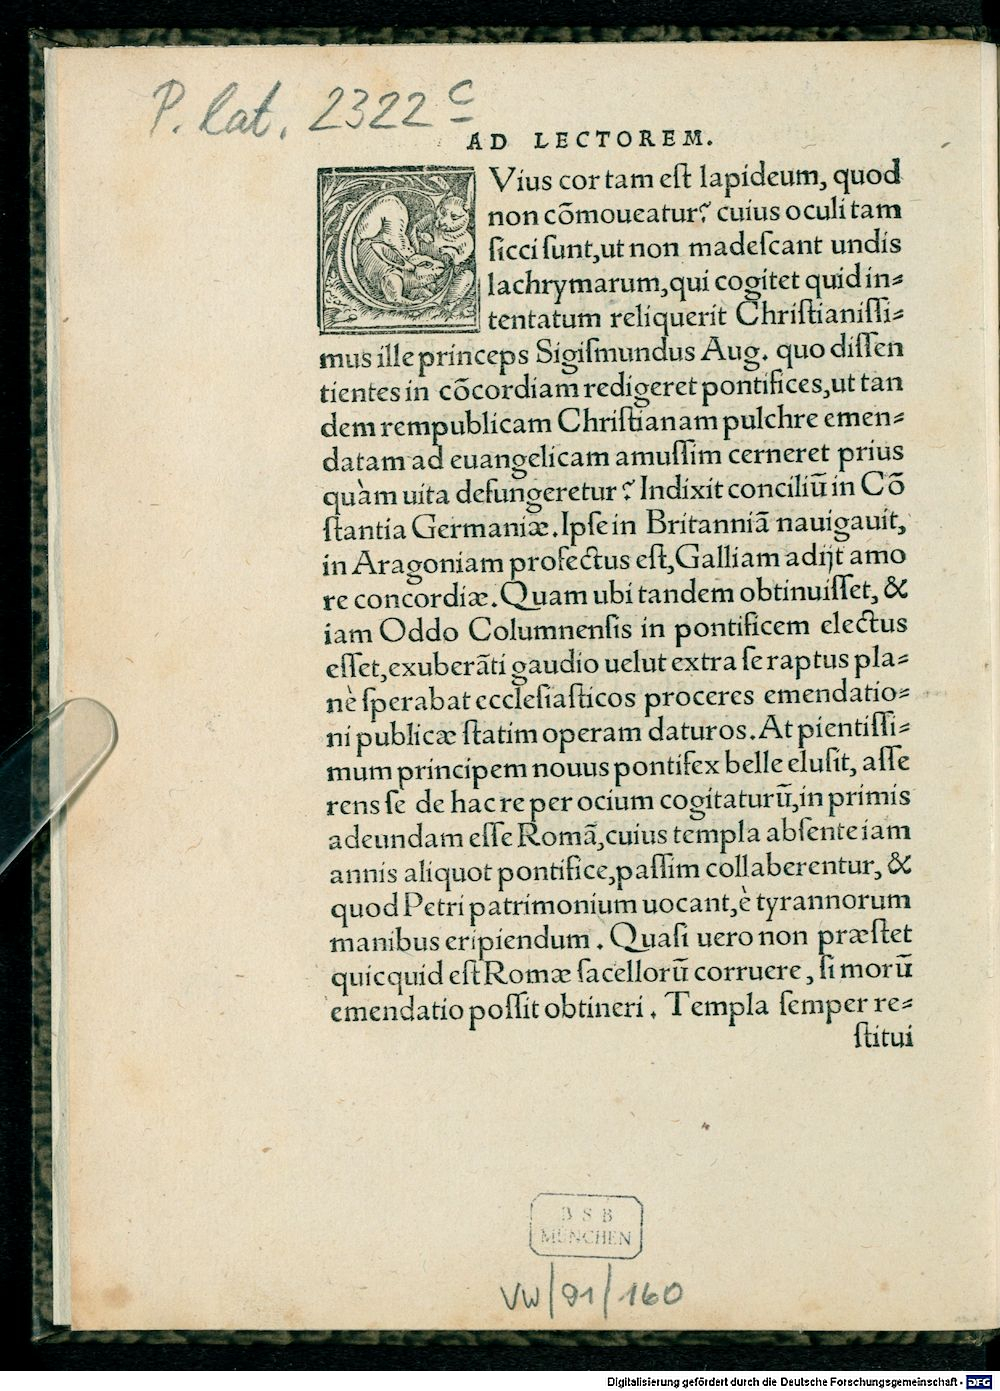 P. lat. 2322 c
AD LECTOREM.
CVius cor tam est lapideum, quod
non cōmoueatur? cuius oculi tam
sicci sunt, ut non madescant undis
lachrymarum, qui cogitet quid in-
tentatum reliquerit Christianissi-
mus ille princeps Sigismundus Aug. quo dissen
tientes in cōcordiam redigeret pontifices, ut tan
dem rempublicam Christianam pulchre emen-
datam ad euangelicam amussim cerneret prius
quàm uita defungeretur? Indixit conciliū in Cō
stantia Germaniæ. Ipse in Britanniā nauigauit,
in Aragoniam profectus est, Galliam adijt amo
re concordiæ. Quam ubi tandem obtinuisset, &
iam Oddo Columnensis in pontificem electus
esset, exuberāti gaudio uelut extra se raptus pla-
nè sperabat ecclesiasticos proceres emendatio-
ni publicæ statim operam daturos. At pientissi-
mum principem nouus pontifex belle elusit, asse
rens se de hac re per ocium cogitaturū, in primis
adeundam esse Romā, cuius templa absente iam
annis aliquot pontifice, passim collaberentur, &
quod Petri patrimonium uocant, è tyrannorum
manibus eripiendum. Quasi uero non præstet
quicquid est Romæ sacellorū corruere, si morū
emendatio possit obtineri. Templa semper re-
stitui
BSB
MÜNCHEN
VW/91/160
Digitalisierung gefördert durch die Deutsche Forschungsgemeinschaft - DFG